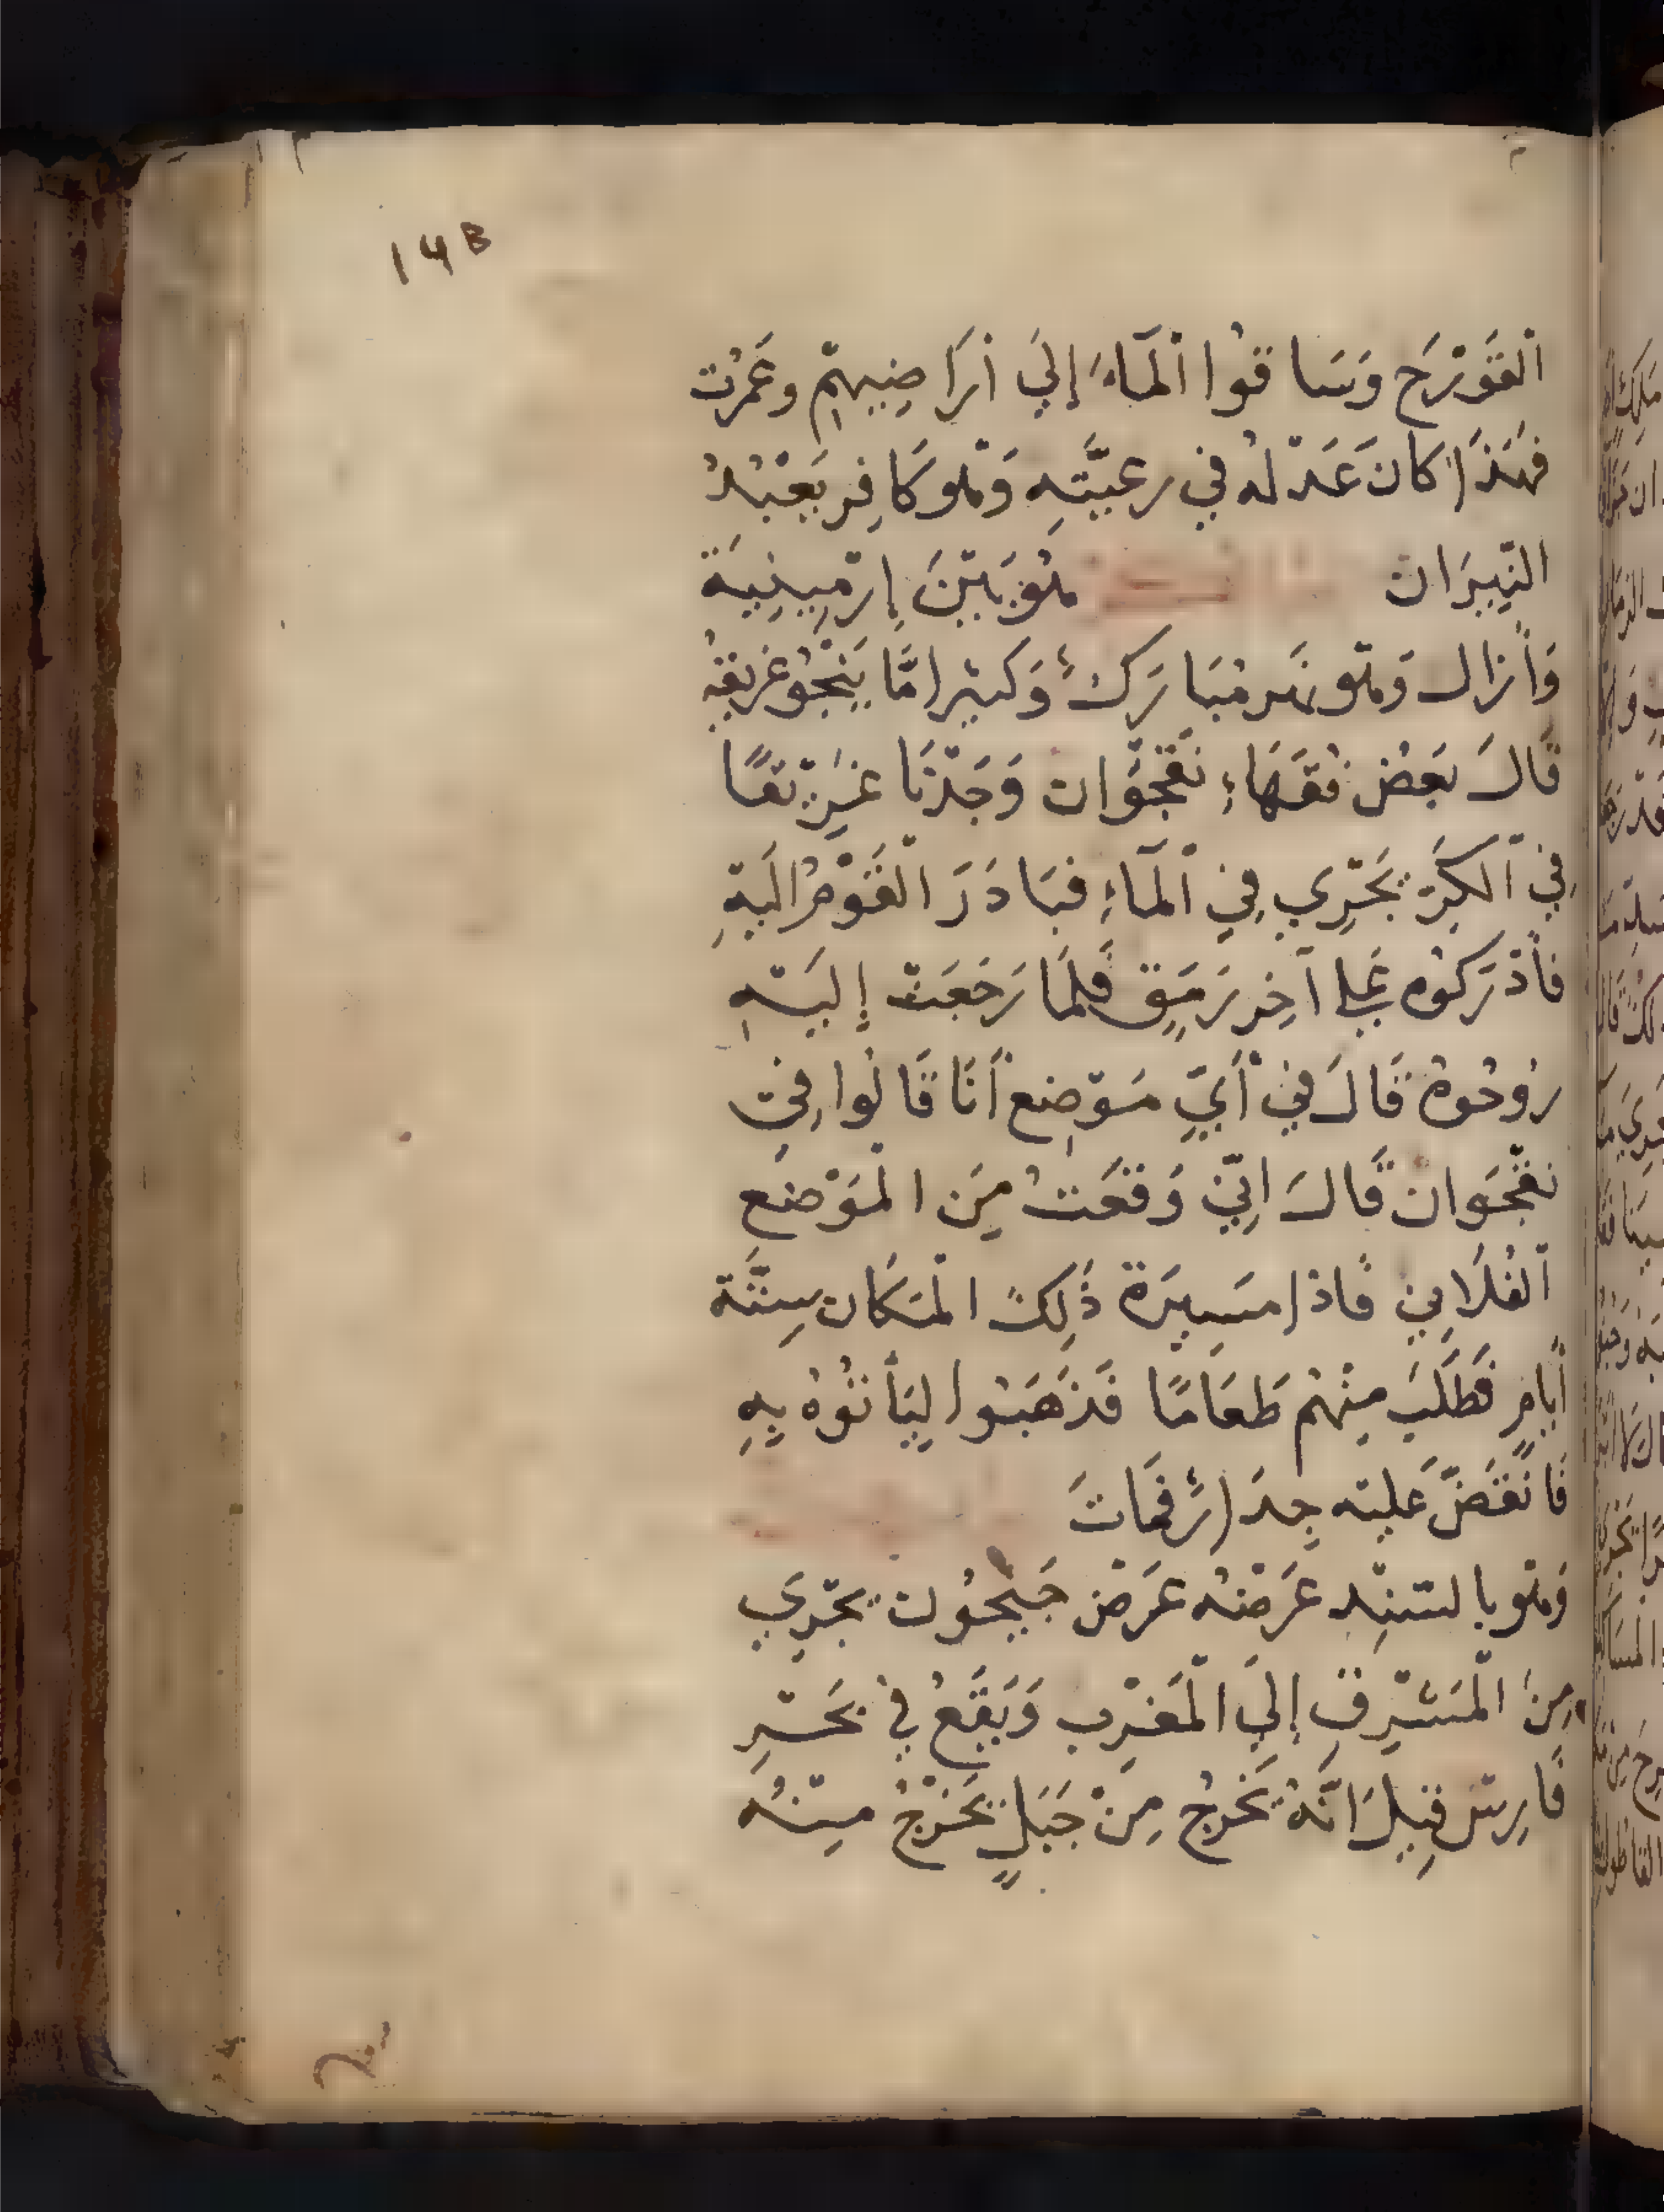 14B
ٱلقَوْرَج وَسَاقُوا ٱلمَآءَ إلَي أرَاضِيهِمْ وعَمُرت
فهَذَا كانَ عَدْلهُ في رعيَّتِهِ وَهُو كَافِر يَعْبُدُ
النِّيرَان هُوَ بَيْنَ إرْمِينِيَة
وَأرّال وَهُو نَهر مُبَارَكٌ وَكثيرا مَّا يَنْجُو غريقهُ
قَالَ بَعض فُقَهَاء نَقْجَوَان وَجَدْنَا غَرِيْقًا
فِي ٱلكَرّ يَجْرِي فِي ٱلمَآءِ فبَادَرَ القَوْمُ اليْهِ
فأدْرَكوُه عَلي آخِر رَمَقٍ فلمَّا رَجَعَتْ إليْهِ
رُوحُوهُ قَالَ في أيِّ مَوْضِع أنَا قَالُوا فِي
نقْجَوان قَالَ انِّي وَقعَتُ مِن المَوْضع
ٱلفُلَاني فَاذا مَسِيرَة ذَلِكَ المَكان سِتَّة
أيامٍ فَطَلَبَ مِنْهُم طَعَامًا فَذَهَبُوا لِيَأتُوهُ بِهِ
فَانقَضّ عَليْه جِدَارٌ فمَاتَ
وَهُو بالسّنْد عَرْضُه عَرْض جَيْحُون يجْرِي
مِن المَشْرِق إلَي المَغْرِب وَيَقَعُ فِي بَحْرِ
فَارِسَ قِيلَ انَّهُ يَخْرجُ مِنْ جَبَلٍ يَخْرُجُ مِنْهُ